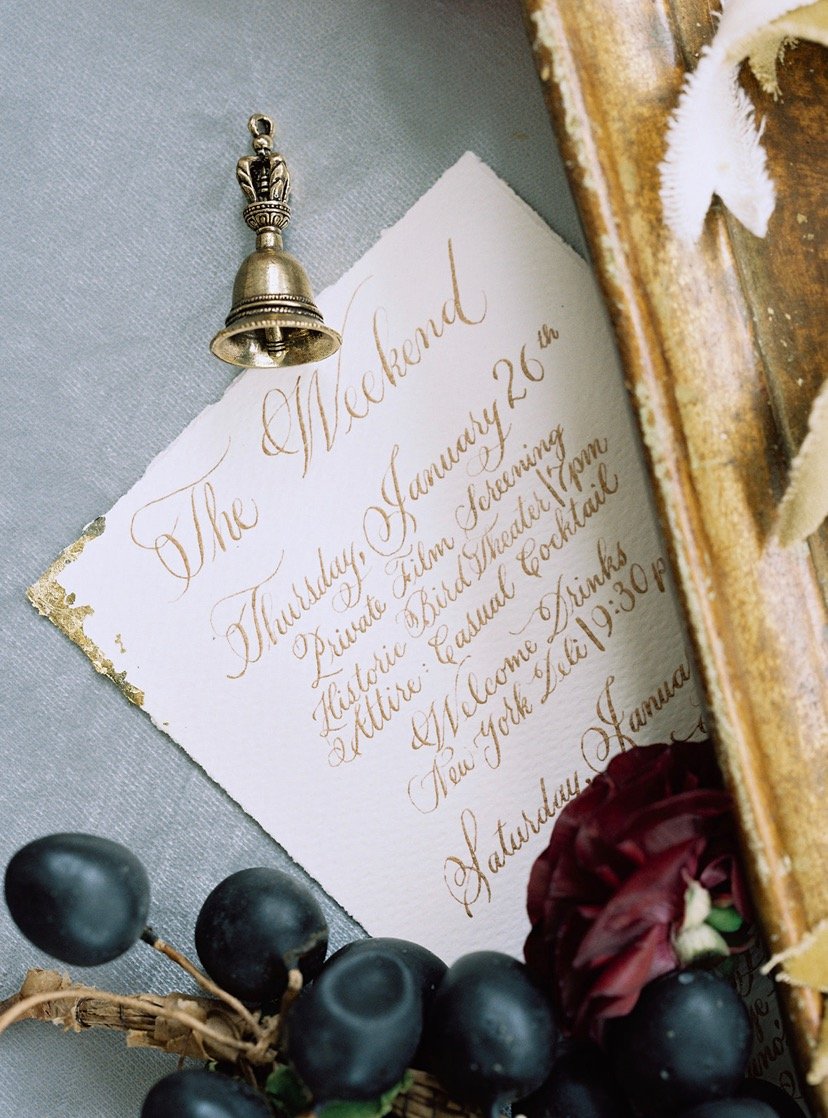 The Weekend
Thursday, January 26th
Private Film Screening
Historic Bird Theater | 7pm
Attire: Casual Cocktail
Welcome Drinks
New York Deli | 9:30 p
Saturday, Janua